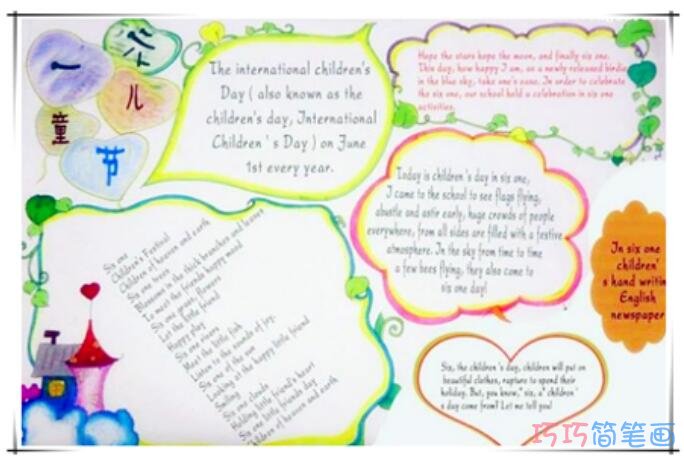 六
一
儿
童
节
The international children's
Day ( also known as the
children's day, International
Children ' s Day ) on June
1st every year.
Hope the stars hope the moon, and finally six one.
This day, how happy I am, as a newly released birdie
in the blue sky, take one's ease. In order to celebrate
the six one, our school held a celebration in six one
activities.
Today is children's day in six one,
I came to the school to see flags flying,
abustle and astir early, huge crowds of people
everywhere, from all sides are filled with a festive
atmosphere. In the sky from time to time
a few bees flying, they also come to
six one day!
In six one
children'
s hand writin
English
newspaper
Six one
Children's Festival
Children of heaven and earth
Six one trees
Blossoms in the thick branches and leaves
To meet the friends happy mood
Six one grass, flowers
Let the little friend
Happy play
Six one rivers
Meet the little fish
Listen to the sounds of joy.
Six one of the sun
Looking at the happy little friend
Smiling
Six one clouds
Holding little friend's heart
Six one little friends day
children of heaven and earth
Six, the children 's day, children will put on
beautiful clothes, rapture to spend their
holiday. But, you know," six, a" children '
s day come from? Let me tell you!
巧巧简笔画